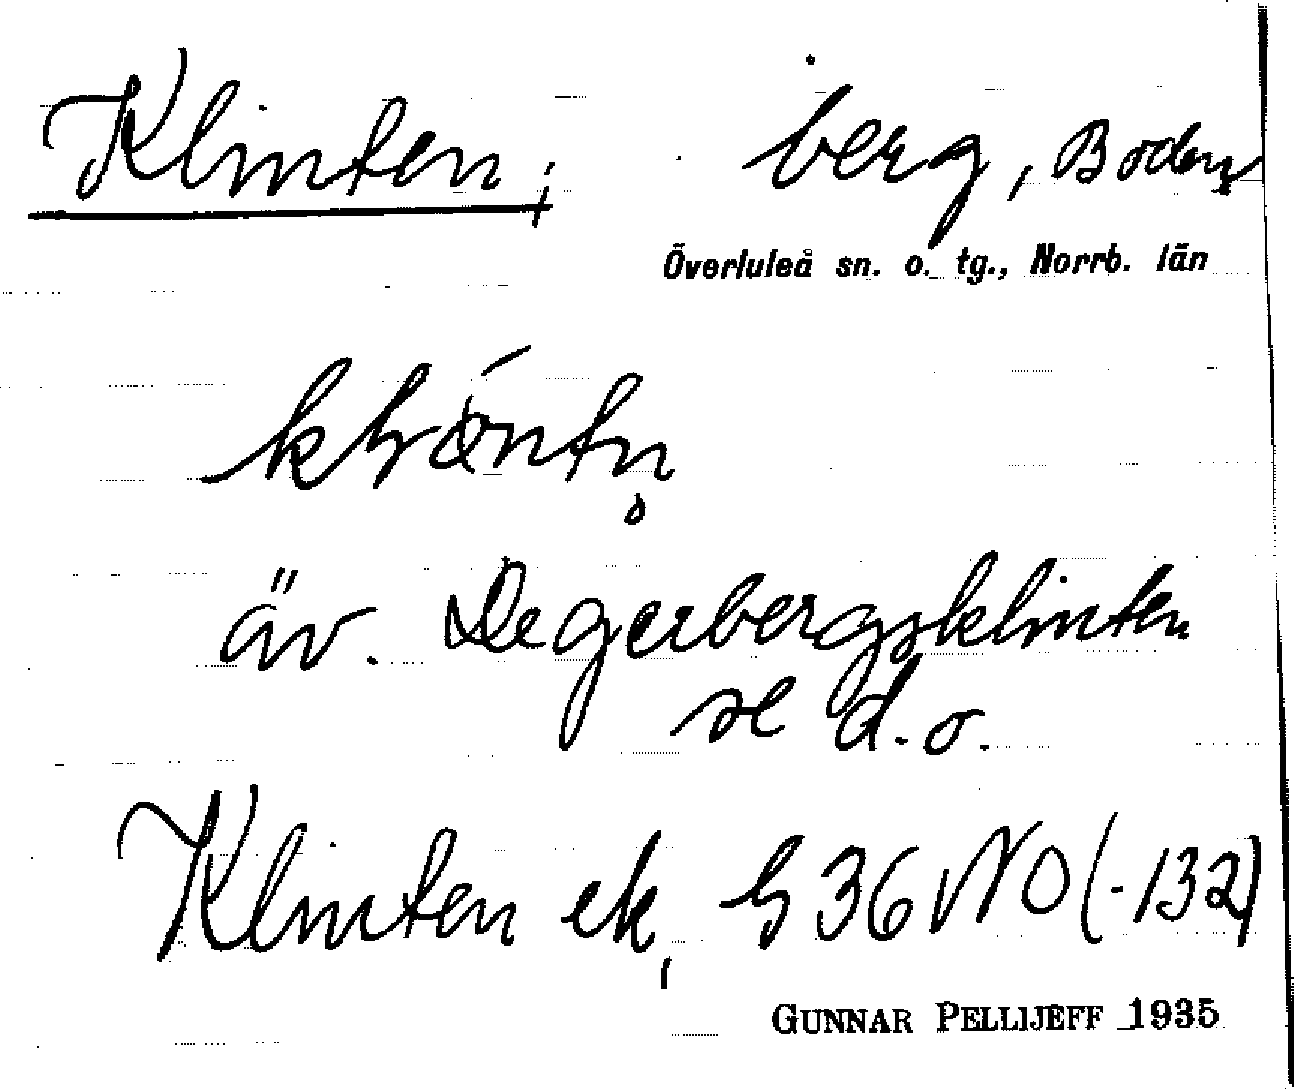 Klinten, berg, Boden
Överluleå sn. o. tg., Norrb. län
äv. Degerbergsklinten
se d. o.
Klinten ek, h 36 NO (-132)
GUNNAR PELLIJEFF 1935